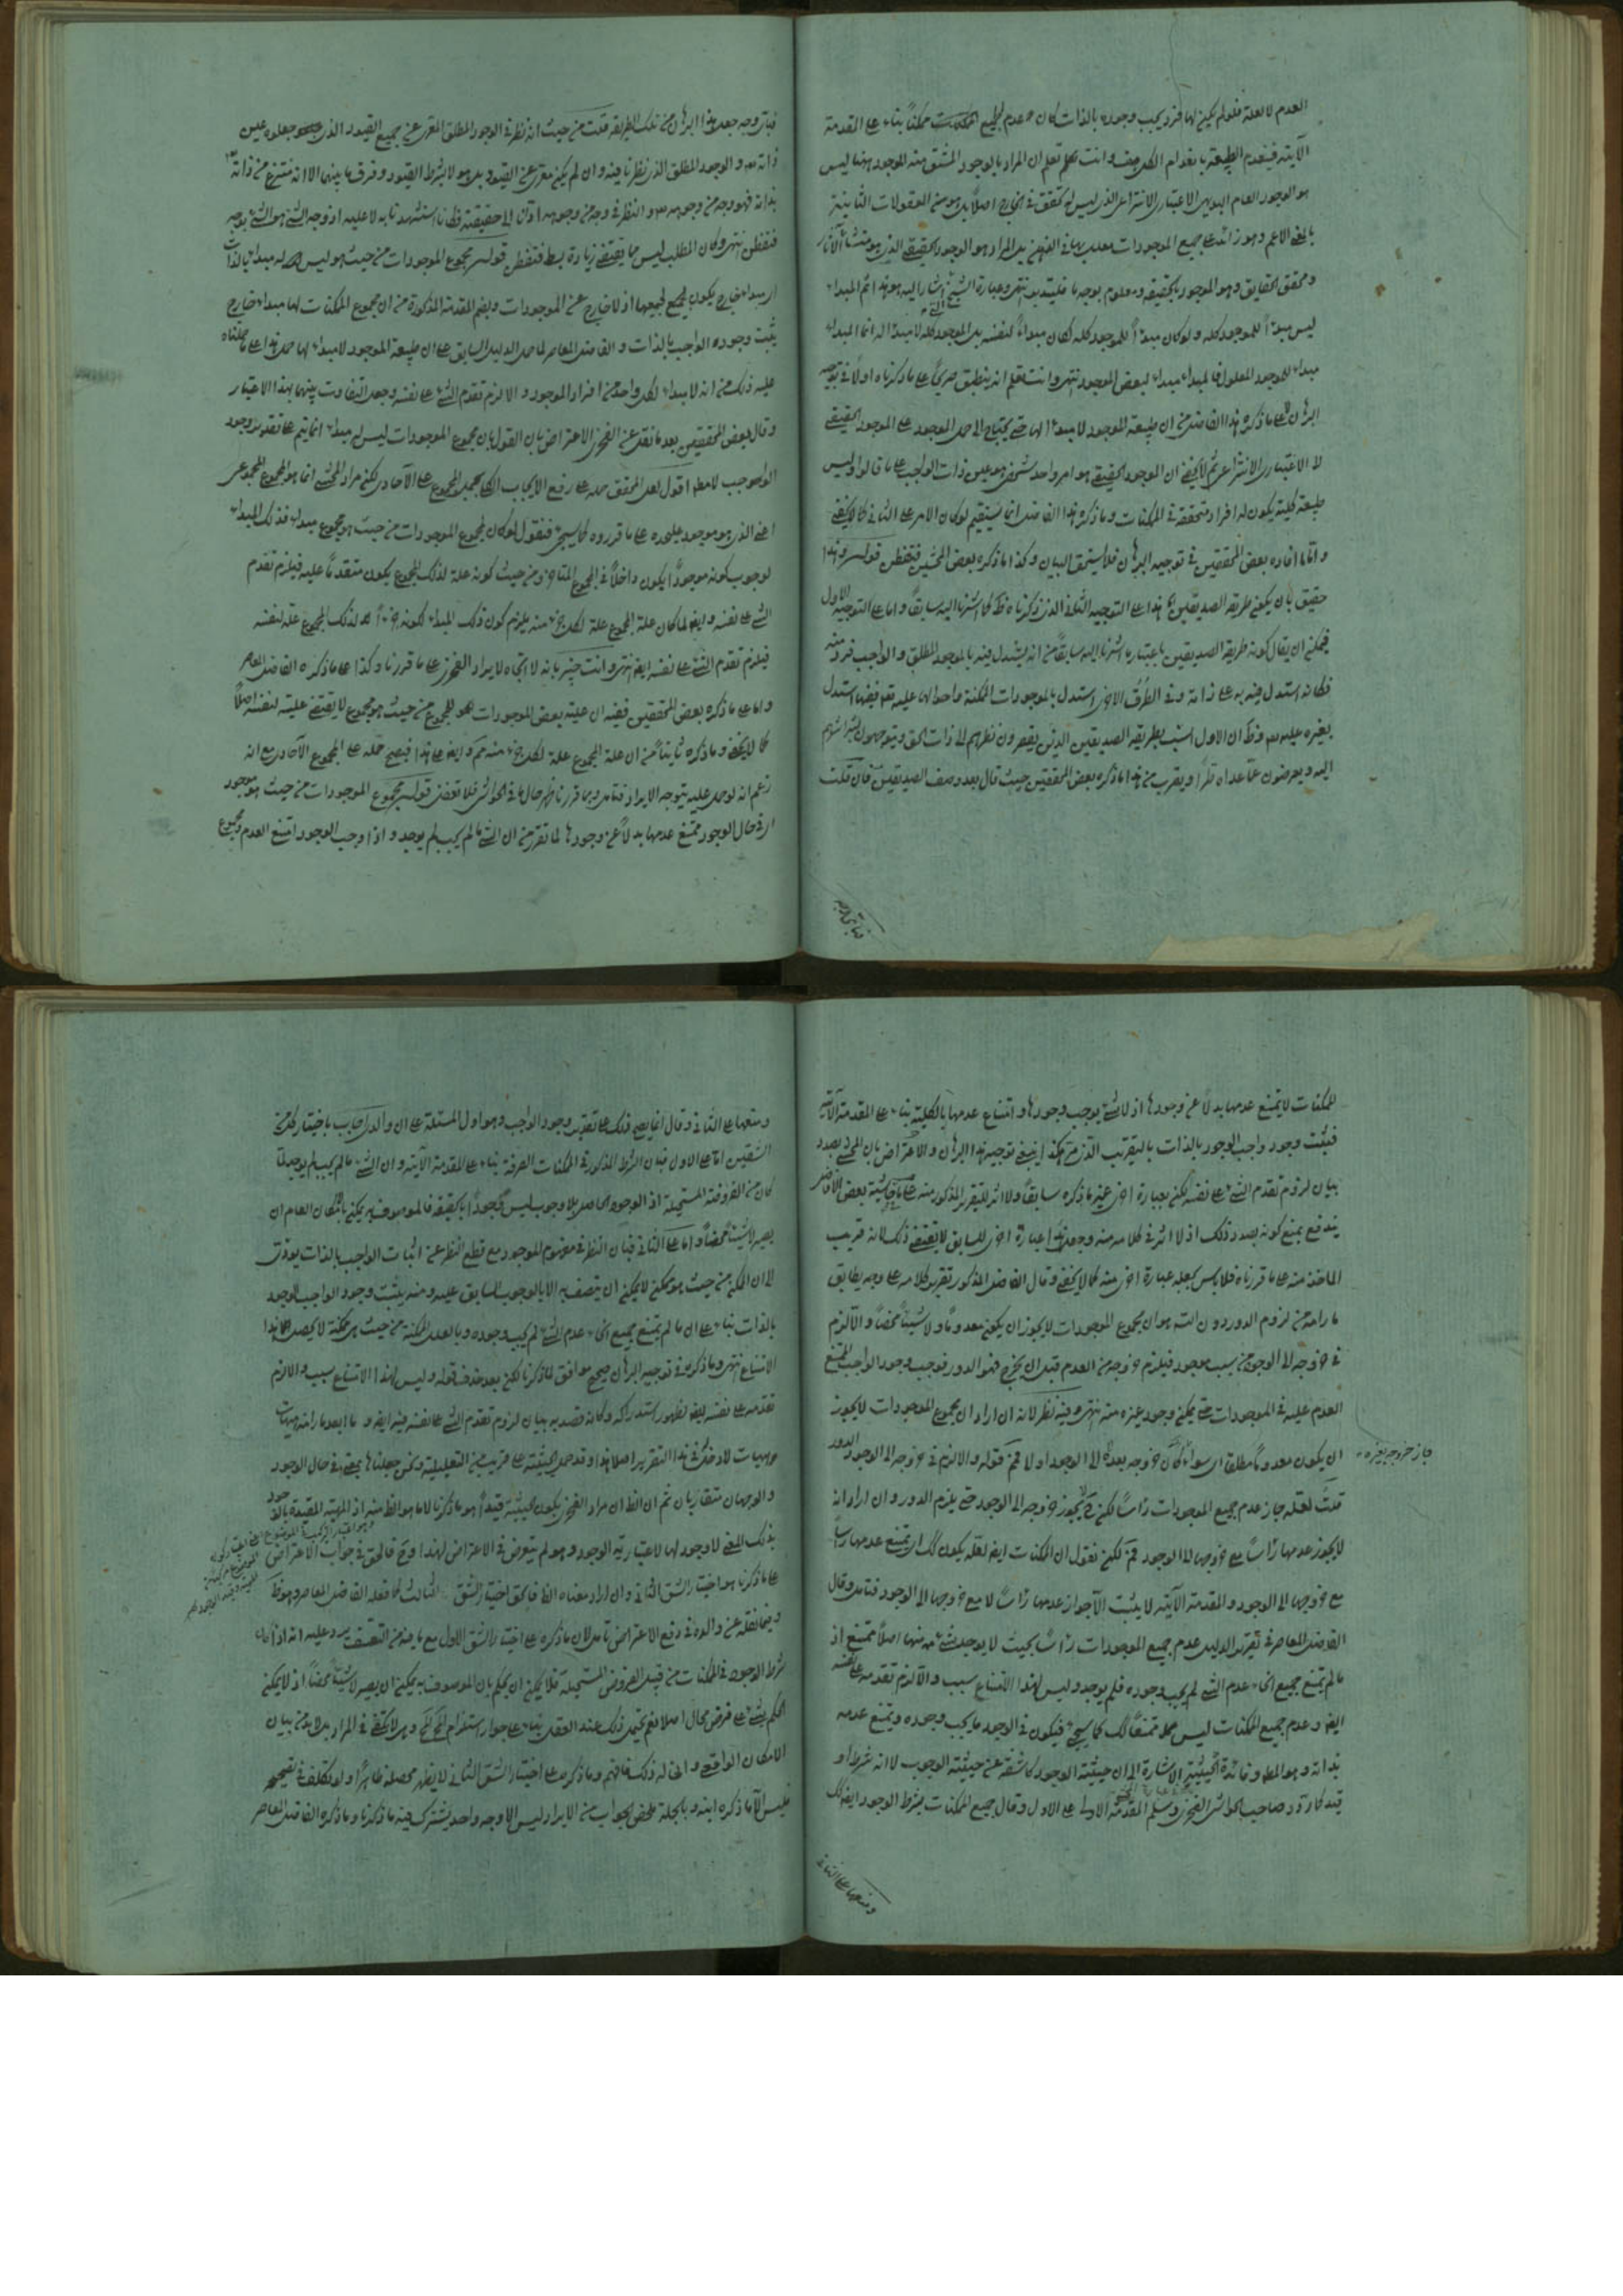 العدم لا لعلة فلو لم يكن لها فرد يجب وجوده بالذات كان عدم جميع الممكنات ممكناً بناء على المقدمة
الآتية فينعدم الطبيعة بانعدام الكل وانت تعلم ان المراد بالموجود المشتق منه الموجود ههنا ليس
هو الوجود العام البديهي الاعتباري الانتزاعي الذي ليس له تحقق في الخارج اصلاً بل هو من المعقولات الثانية
بالمعنى الاعم وهو زائد على جميع الموجودات في الذهن بل المراد هو الوجود الحقيقي الذي هو منشأ الآثار
ومحقق الحقايق وهو الموجود بالحقيقة ومعلوم بوجه ما فليتدبر انتهى وعبارة الشيخ المشار اليه هو هذا ثم المبداء
ليس مبدأ للموجود كله ولو كان مبدأ للموجود كله لكان مبداء لنفسه بل الموجود كله لا مبدأ له انما المبداء
مبداء للموجود المعلول فالمبداء مبداء لبعض الموجود انتهى وانت تعلم انه ينطبق على ما ذكرناه اولاً في توجيه
البرهان لا على ما ذكره هذا الفاضل من ان طبيعة الموجود لا مبدأ لها حتى يحتاج الى حمل الموجود على الموجود الحقيقي
لا الاعتباري الانتزاعي ثم لا يخفى ان الموجود الحقيقي هو امر واحد شخصي هو عين ذات الواجب على ما قالوا وليس
طبيعة كلية يكون له افراد متحققة في الممكنات وما ذكره هذا الفاضل انما يستقيم لو كان الامر على الثاني كما لا يخفى
واما ما افاده بعض المحققين في توجيه البرهان فلا يستحق البيان وكذا ما ذكره بعض المحشين فتفطن قوله وهذا
حقيق بان يكون طريقة الصديقين هذا على التوجيه الثالث الذي ذكرناه ظ كما اشرنا اليه سابقاً واما على التوجيه الاول
فيمكن ان يقال كونه طريقة الصديقين باعتبار ما اشرنا اليه سابقاً من انه يستدل فيه بالموجود المطلق والواجب فرد منه
فكانه استدل فيه به على ذاته وفي الطرق الاخرى استدل بالموجودات الممكنة واحوالها عليه تعالى ففيها استدل
بغيره عليه وظ ان الاول انسب بطريقة الصديقين الذين يقصرون نظرهم الى ذات الحق ويتوجهون بشراشرهم
اليه ويعرضون عما عداه طرا ويقرب من هذا ما ذكره بعض المحققين حيث قال بعد وصف الصديقين فان قلت
فباى وجه
فباى وجه جعل هذا البرهان من تلك الطريقة قلت من حيث انه نظر في الوجود المطلق المعرى عن جميع القيود الذي جعلوه عين
ذاته والوجود المطلق الذي نظرنا فيه وان لم يكن معرى عن القيود بل هو لا بشرط القيود وفرق ما بينهما الا انه منتزع من ذاته
بذاته فهو وجه من وجوهه والنظر في وجه من وجوهه الى حقيقته فكانا استشهدنا به لا عليه اذ وجه الشئ هو الشئ بوجه
فتفطن انتهى وكان المطلب ليس مما يقتضي زيادة بسط فتفطن قوله مجموع الموجودات من حيث هو ليس له مبداء بالذات
اي مبداء خارج يكون لجميع جميعها اذ لا خارج عن الموجودات وبضم المقدمة المذكورة من ان مجموع الممكنات لها مبداء خارج
يثبت وجود الواجب بالذات والفاضل المعاصر لما حمل الدليل السابق على ان طبيعة الموجود لا مبداء لها حمل هذا على ما حملناه
عليه ذلك من انه لا مبداء لكل واحد من افراد الموجود والا لزم تقدم الشئ على نفسه وجعل التفاوت بينهما بهذا الاعتبار
وقال بعض المحققين بعد ما نقل عن الفخري الاعتراض بان القول بان مجموع الموجودات ليس له مبداء انما يتم على تقدير وجود
الواجب لا مطلقا اقول لعل المحقق حمله على رفع الايجاب الكلي المجموع على الآحاد لكن مراد المحشي انما هو المجموع المجموعي
اعني الذي هو موجود عليحدة على ما قرروه كما سيجئ فنقول لو كان لمجموع الموجودات من حيث هو مجموع مبداء فذلك المبداء
لوجوب كونه موجوداً يكون داخلاً في المجموع المتاخر ومن حيث كونه علة لذلك المجموع يكون متقدماً عليه فيلزم تقدم
الشئ على نفسه وايضا لما كان علة المجموع علة لكل جزء منه يلزم كون ذلك المبداء لكونه جزءاً لذلك المجموع علة لنفسه
فيلزم تقدم الشئ على نفسه ايضا انتهى وانت خبير بانه لا اتجاه لايراد الفخري على ما قررنا وكذا على ما ذكره الفاضل المعاصر
واما على ما ذكره بعض المحققين ففيه ان علية بعض الموجودات للمجموع من حيث هو مجموع لا يقتضي علية لنفسه اصلاً
كما لا يخفى وما ذكره ثانياً من ان علة المجموع علة لكل جزء منه مم وايضا على هذا فيصح حمله على المجموع الآحادي مع انه
زعم انه لو حمل عليه يتوجه الايراد فتامل وبما قررنا ظهر حال ما في الحواشي فلا تغفل قوله مجموع الموجودات من حيث هو موجود
اي في حال الوجود يمتنع عدمها بدلاً عن وجودها لما تقرر من ان الشئ ما لم يجب لم يوجد واذا وجب الوجود امتنع العدم ومجموع
الممكنات لا يمتنع عدمها بدلاً عن وجودها اذ لا شئ يوجب وجودها وامتناع عدمها بالكلية بناء على المقدمة الآتية
فيثبت وجود واجب الوجود بالذات بالتقريب الذي مر هكذا ينبغي توجيه هذا البرهان والاعتراض بان المحشي بصدد
بيان لزوم تقدم الشئ على نفسه لكن بعبارة اخرى غير ما ذكره سابقاً ولا اثر للتقرير المذكور منه على ما في حاشية بعض الافاضل
يندفع بمنع كونه بصدد ذلك اذ لا اثر في كلامه منه وجعل هذا عبارة اخرى للسابق لا يقتضي ذلك لانه قريب
الماخذ منه على ما قررناه فلا باس بجعله عبارة اخرى منه كما لا يخفى وقال الفاضل المذكور تقرير كلامه على وجه يطابق
ما رامه من لزوم الدور دون التسلسل هو ان مجموع الموجودات لا يجوز ان يكون معدوماً ولا شيئاً محضاً والا لزم
في خروجه الى الوجود من سبب موجود فيلزم خروجه من العدم قبل ان يخرج فهو الدور فوجب وجود الواجب الممتنع
العدم عليه في الموجودات حتى يمكن وجود غيره منه انتهى وفيه نظر لانه ان اراد ان مجموع الموجودات لا يجوز
ان يكون معدوماً مطلقا اي سواء كان خروجه بعده الى الوجود اولا فمم قوله والا لزم في خروجه الى الوجود الدور
جاز خروجه بغيره
قلت لعله جاز عدم جميع الموجودات رأساً لكن لا يجوز خروجه الى الوجود حتى يلزم الدور وان اراد انه
لا يجوز عدمها رأساً مع خروجها الى الوجود فمم لكن نقول ان الممكنات ايضا لعله يكون كك اي يمتنع عدمها رأساً
مع خروجها الى الوجود والمقدمة الآتية لا يثبت الا جواز عدمها رأساً لا مع خروجها الى الوجود فتامل وقال
الفاضل المعاصر في تقرير الدليل عدم جميع الموجودات رأساً بحيث لا يوجد شئ منها اصلاً ممتنع اذ
ما لم يمتنع جميع انحاء عدم الشئ لم يجب وجوده فلم يوجد وليس لهذا الامتناع سبب والا لزم تقدمه على نفسه
ايضا وعدم جميع الممكنات ليس ممتنعاً كك كما سيجئ فيكون في الوجود ما يجب وجوده ويمتنع عدمه
بذاته وهو المط وفائدة الحيثية الاشارة الى ان حيثية الوجود كاشفة عن حيثية الوجوب لا انه شرط او
قيد كما ردد صاحب الحواشي الفخري وسلم المقدمة الاولى على الاول وقال جميع الممكنات بشرط الوجود ايضا كك
ومنعها على الثاني
ومنعها على الثاني وقال انما يصح ذلك على تقدير وجود الواجب وهو اول المسئلة على ان والدي اجاب باختيار كل من
الشقين اما على الاول فبان الشرط المذكور في الممكنات الصرفة بناء على المقدمة الآتية وان الشئ ما لم يجب لم يوجد
كان من الفروض المستحيلة اذ الوجود الحاصل بلا وجوب ليس وجوداً بالحقيقة فالموصوف به يمكن بالامكان العام ان
يصير لا شيئاً محضاً واما على الثاني فبان النظر في مفهوم الموجود مع قطع النظر عن اثبات الواجب بالذات يودى
الى ان الممكن من حيث هو ممكن لا يمكن ان يتصف به الا بالوجوب السابق عليه ومنه يثبت وجود الواجب الوجود
بالذات بناء على ان ما لم يمتنع جميع انحاء عدم الشئ لم يجب وجوده وبالعلل الممكنة من حيث هي ممكنة لا يحصل هذا
الامتناع انتهى وما ذكره في توجيه البرهان صحيح موافق لما ذكرنا لكن بعد حذف قوله وليس لهذا الامتناع سبب والا لزم
تقدمه على نفسه ايضا لظهور استدراكه وكانه قصد به بيان لزوم تقدم الشئ على نفسه فيه ايضا وما ابعد ما رامه هيهات
وهيهات لا دخل في هذا التقرير اصلا هذا وقد حمل الحيثية على قريب من التعليلية ونحن جعلناها بمعنى في حال الوجود
والوجهان متقاربان ثم ان الظ ان مراد الفخري بكون الحيثية قيداً هو ما ذكرنا لا ما هو الظ منه اذ المهية المقيدة بالوجود
بذلك المعنى لا وجود لها لاعتبارية الوجود وهو لم يتعرض في الاعتراض لهذا وح فالحق في جواب الاعتراض
على ما ذكرنا هو اختيار الشق الثاني وان اراد معناه الظ فالحق اختيار الشق الثالث كما فعله الفاضل المعاصر وهو ظ
وفيما نقله عن والده في دفع الاعتراض تامل لان ما ذكره على اختيار الشق الاول مع ما فيه من التعسف يرد عليه انه اذا كان
شرط الوجود في الممكنات من قبيل الفروض المستحيلة فلا يمكن ان يحكم بان الموصوف به يمكن ان يصير لا شيئاً محضاً اذ لا يمكن
الحكم بشئ على فرض محال اصلا نعم يحتمل ذلك عند العقل بناء على جواز استلزام المح المح وهو لا يكفي في المراد بل لا بد من بيان
الامكان الواقعي واني له ذلك فافهم وما ذكره على اختيار الشق الثاني لا يظهر محصله ظاهراً ولو تكلف في تصحيحه
فليس الا ما ذكره ابنه وبالجملة ملخص الجواب من الايراد ليس الا وجه واحد يشترك فيه ما ذكرنا وما ذكره الفاضل المعاصر